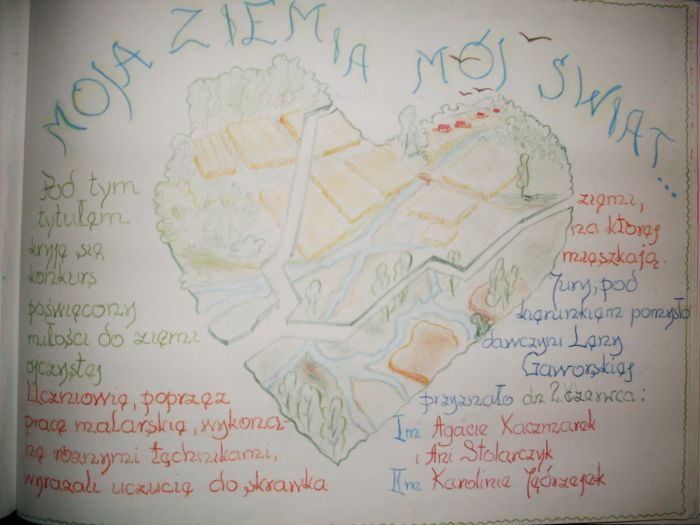 MOJA ZIEMIA MÓJ ŚWIAT...
Pod tym
tytułem
kryją się
konkurs
poświęcony
miłości do ziemi
ojczystej
Uczniowie, poprzez
prace malarskie, wykona-
ne różnymi technikami,
wyrażali uczucie do skrawka
ziemi,
na której
mieszkają.
Jury, pod
kierunkiem pomysło
dawczyni Leny
Gaworskiej
przyznało dn. 2 czerwca:
I m Agacie Kaczmarek
i Ani Stolarczyk
II m Karolinie Jędrzejek